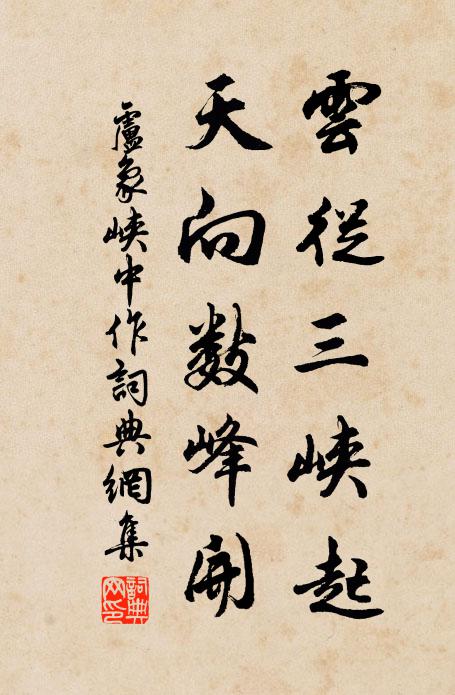 雲從三峽起
天向數峰開
盧象峽中作詞典網集
詞典網印